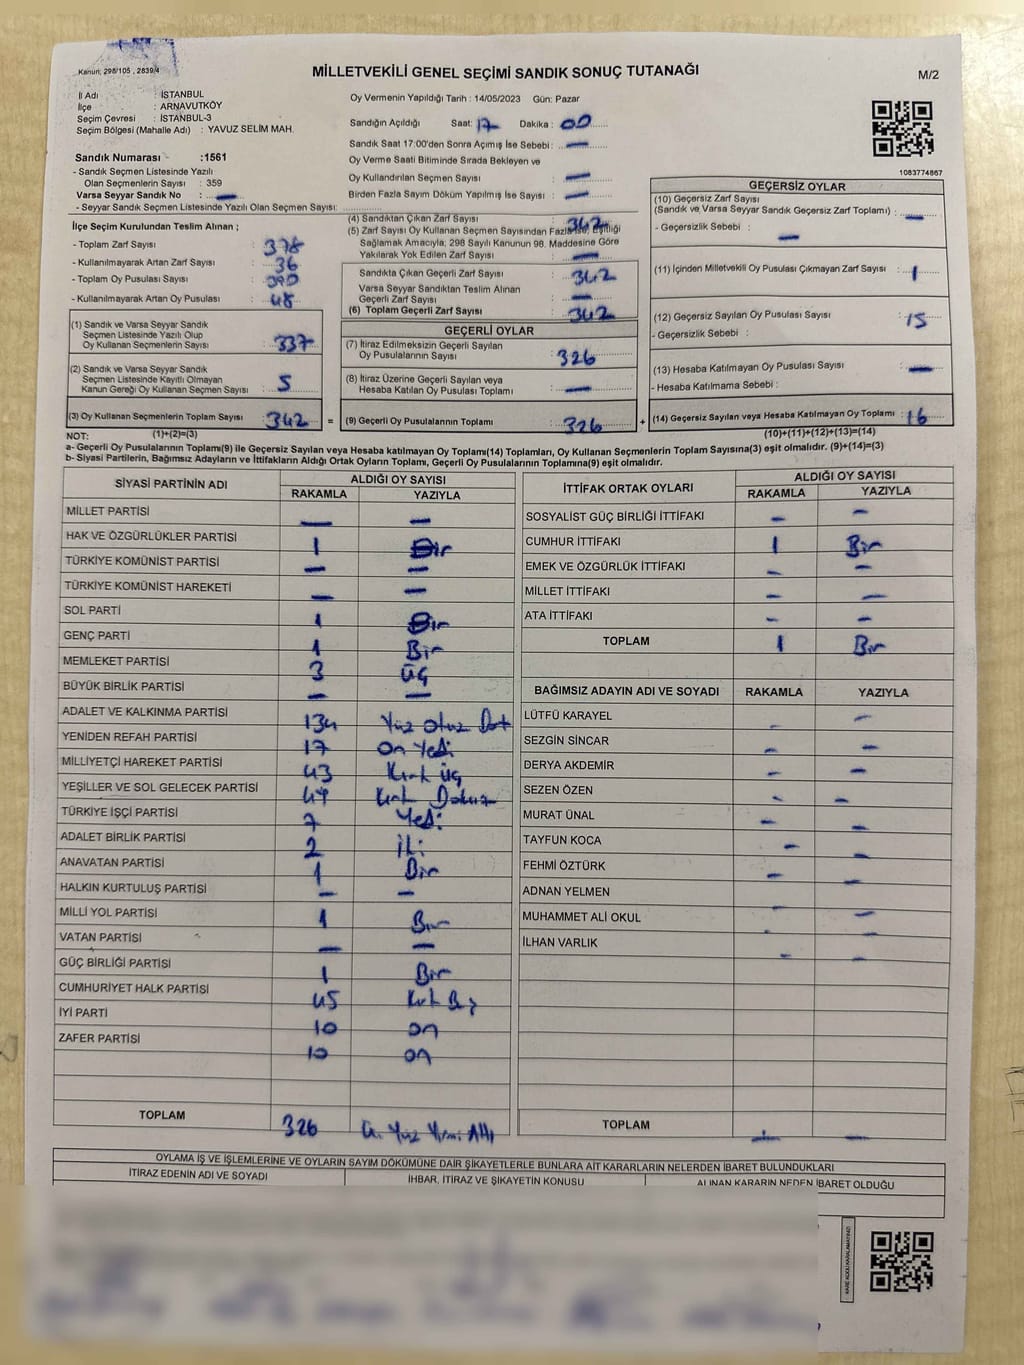 Kanun; 298/105 , 2839/4
MİLLETVEKİLİ GENEL SEÇİMİ SANDIK SONUÇ TUTANAĞI
M/2
İl Adı : İSTANBUL
İlçe : ARNAVUTKÖY
Seçim Çevresi : İSTANBUL-3
Seçim Bölgesi (Mahalle Adı) : YAVUZ SELİM MAH.
Sandık Numarası :1561
- Sandık Seçmen Listesinde Yazılı
Olan Seçmenlerin Sayısı : 359
Varsa Seyyar Sandık No : —
- Seyyar Sandık Seçmen Listesinde Yazılı Olan Seçmen Sayısı:
Oy Vermenin Yapıldığı Tarih : 14/05/2023 Gün: Pazar
Sandığın Açıldığı Saat: 17 Dakika : 00
Sandık Saat 17:00'den Sonra Açımış İse Sebebi : —
Oy Verme Saati Bitiminde Sırada Bekleyen ve
Oy Kullandırılan Seçmen Sayısı : —
Birden Fazla Sayım Döküm Yapılmış İse Sayısı : —
1083774867
İlçe Seçim Kurulundan Teslim Alınan ;
- Toplam Zarf Sayısı : 378
- Kullanılmayarak Artan Zarf Sayısı : 36
- Toplam Oy Pusulası Sayısı : 390
- Kullanılmayarak Artan Oy Pusulası : 48
(1) Sandık ve Varsa Seyyar Sandık
Seçmen Listesinde Yazılı Olup
Oy Kullanan Seçmenlerin Sayısı : 337
(2) Sandık ve Varsa Seyyar Sandık
Seçmen Listesinde Kayıtlı Olmayan
Kanun Gereği Oy Kullanan Seçmen Sayısı : 5
(3) Oy Kullanan Seçmenlerin Toplam Sayısı : 342
(1)+(2)=(3)
(4) Sandıktan Çıkan Zarf Sayısı : 342
(5) Zarf Sayısı Oy Kullanan Seçmen Sayısından Fazla İse, Eşitliği
Sağlamak Amacıyla; 298 Sayılı Kanunun 98. Maddesine Göre
Yakılarak Yok Edilen Zarf Sayısı : —
Sandıkta Çıkan Geçerli Zarf Sayısı : 342
Varsa Seyyar Sandıktan Teslim Alınan
Geçerli Zarf Sayısı : —
(6) Toplam Geçerli Zarf Sayısı : 342
GEÇERLİ OYLAR
(7) İtiraz Edilmeksizin Geçerli Sayılan
Oy Pusulalarının Sayısı : 326
(8) İtiraz Üzerine Geçerli Sayılan veya
Hesaba Katılan Oy Pusulası Toplamı : —
= (9) Geçerli Oy Pusulalarının Toplamı : 326
GEÇERSİZ OYLAR
(10) Geçersiz Zarf Sayısı
(Sandık ve Varsa Seyyar Sandık Geçersiz Zarf Toplamı) : —
- Geçersizlik Sebebi : —
(11) İçinden Milletvekili Oy Pusulası Çıkmayan Zarf Sayısı : 1
(12) Geçersiz Sayılan Oy Pusulası Sayısı : 15
- Geçersizlik Sebebi :
(13) Hesaba Katılmayan Oy Pusulası Sayısı : —
- Hesaba Katılmama Sebebi :
+ (14) Geçersiz Sayılan veya Hesaba Katılmayan Oy Toplamı : 16
(10)+(11)+(12)+(13)=(14)
NOT:
a- Geçerli Oy Pusulalarının Toplamı(9) ile Geçersiz Sayılan veya Hesaba katılmayan Oy Toplamı(14) Toplamları, Oy Kullanan Seçmenlerin Toplam Sayısına(3) eşit olmalıdır. (9)+(14)=(3)
b- Siyasi Partilerin, Bağımsız Adayların ve İttifakların Aldığı Ortak Oyların Toplamı, Geçerli Oy Pusulalarının Toplamına(9) eşit olmalıdır.
SİYASİ PARTİNİN ADI ALDIĞI OY SAYISI
RAKAMLA YAZIYLA
MİLLET PARTİSİ — —
HAK VE ÖZGÜRLÜKLER PARTİSİ 1 Bir
TÜRKİYE KOMÜNİST PARTİSİ — —
TÜRKİYE KOMÜNİST HAREKETİ — —
SOL PARTİ 1 Bir
GENÇ PARTİ 1 Bir
MEMLEKET PARTİSİ 3 Üç
BÜYÜK BİRLİK PARTİSİ — —
ADALET VE KALKINMA PARTİSİ 134 Yüz Otuz Dört
YENİDEN REFAH PARTİSİ 17 On Yedi
MİLLİYETÇİ HAREKET PARTİSİ 43 Kırk Üç
YEŞİLLER VE SOL GELECEK PARTİSİ 49 Kırk Dokuz
TÜRKİYE İŞÇİ PARTİSİ 7 Yedi
ADALET BİRLİK PARTİSİ 2 İki
ANAVATAN PARTİSİ 1 Bir
HALKIN KURTULUŞ PARTİSİ — —
MİLLİ YOL PARTİSİ 1 Bir
VATAN PARTİSİ — —
GÜÇ BİRLİĞİ PARTİSİ 1 Bir
CUMHURİYET HALK PARTİSİ 45 Kırk Beş
İYİ PARTİ 10 on
ZAFER PARTİSİ 10 on
TOPLAM 326 Üç Yüz Yirmi Altı
İTTİFAK ORTAK OYLARI ALDIĞI OY SAYISI
RAKAMLA YAZIYLA
SOSYALİST GÜÇ BİRLİĞİ İTTİFAKI — —
CUMHUR İTTİFAKI 1 Bir
EMEK VE ÖZGÜRLÜK İTTİFAKI — —
MİLLET İTTİFAKI — —
ATA İTTİFAKI — —
TOPLAM 1 Bir
BAĞIMSIZ ADAYIN ADI VE SOYADI RAKAMLA YAZIYLA
LÜTFÜ KARAYEL — —
SEZGİN SİNCAR — —
DERYA AKDEMİR — —
SEZEN ÖZEN — —
MURAT ÜNAL — —
TAYFUN KOCA — —
FEHMİ ÖZTÜRK — —
ADNAN YELMEN — —
MUHAMMET ALİ OKUL — —
İLHAN VARLIK — —
TOPLAM — —
OYLAMA İŞ VE İŞLEMLERİNE VE OYLARIN SAYIM DÖKÜMÜNE DAİR ŞİKAYETLERLE BUNLARA AİT KARARLARIN NELERDEN İBARET BULUNDUKLARI
İTİRAZ EDENİN ADI VE SOYADI İHBAR, İTİRAZ VE ŞİKAYETİN KONUSU ALINAN KARARIN NEDEN İBARET OLDUĞU